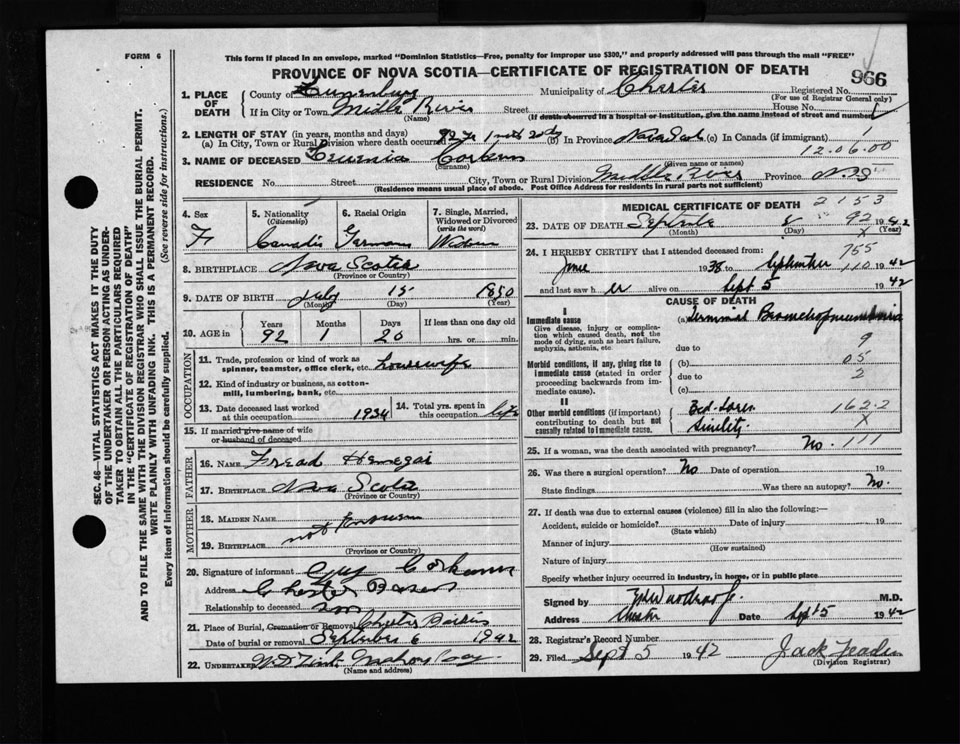 FORM 6
This form if placed in an envelope, marked "Dominion Statistics—Free, penalty for improper use $300," and properly addressed will pass through the mail "FREE"
PROVINCE OF NOVA SCOTIA—CERTIFICATE OF REGISTRATION OF DEATH
966
SEC. 46—VITAL STATISTICS ACT MAKES IT THE DUTY
OF THE UNDERTAKER OR PERSON ACTING AS UNDER-
TAKER TO OBTAIN ALL THE PARTICULARS REQUIRED
IN THE "CERTIFICATE OF REGISTRATION OF DEATH"
AND TO FILE THE SAME WITH THE DIVISION REGISTRAR WHO SHALL ISSUE THE BURIAL PERMIT.
WRITE PLAINLY WITH UNFADING INK. THIS IS A PERMANENT RECORD.
Every item of information should be carefully supplied. (See reverse side for instructions.)
1. PLACE OF DEATH
County of Lunenburg Municipality of Chester Registered No.
(For use of Registrar General only)
If in City or Town Midle River Street House No.
(Name) If death occurred in a hospital or institution, give the name instead of street and number
2. LENGTH OF STAY (in years, months and days)
(a) In City, Town or Rural Division where death occurred 92 yr 1 mth 20 d (b) In Province (c) In Canada (if immigrant)
12.06.00
3. NAME OF DECEASED
(Surname) (Given name or names)
RESIDENCE No. Street City, Town or Rural Division Middle River Province N.S
(Residence means usual place of abode. Post Office Address for residents in rural parts not sufficient)
4. Sex
F
5. Nationality
(Citizenship)
6. Racial Origin
7. Single, Married,
Widowed or Divorced
(write the word)
8. BIRTHPLACE Nova Scotia
(Province or Country)
9. DATE OF BIRTH July 15 1850
(Month) (Day) (Year)
10. AGE in
Years Months Days If less than one day old
92 1 20 hrs. or min.
OCCUPATION
11. Trade, profession or kind of work as
spinner, teamster, office clerk, etc. housewife
12. Kind of industry or business, as cotton-
mill, lumbering, bank, etc.
13. Date deceased last worked
at this occupation 1934
14. Total yrs. spent in
this occupation life
15. If married give name of wife
or husband of deceased
FATHER
16. NAME Fread
17. BIRTHPLACE Nova Scotia
(Province or Country)
MOTHER
18. MAIDEN NAME
not known
19. BIRTHPLACE
(Province or Country)
20. Signature of informant
Address Chester Basin
Relationship to deceased son
21. Place of Burial, Cremation or Removal Chester Basin
Date of burial or removal September 6 1942
22. UNDERTAKER Mahone Bay
(Name and address)
MEDICAL CERTIFICATE OF DEATH
2153
23. DATE OF DEATH 92 1942
(Month) (Day) (Year)
X
24. I HEREBY CERTIFY that I attended deceased from:
755
June 1938 to September 110 1942
and last saw h er alive on Sept 5 1942
CAUSE OF DEATH
I
Immediate cause
Give disease, injury or complica-
tion which caused death, not the
mode of dying, such as heart failure,
asphyxia, asthenia, etc.
(a) Terminal Bronchopneumonia
9
due to
Morbid conditions, if any, giving rise to
immediate cause (stated in order
proceeding backwards from im-
mediate cause).
(b)
05
due to 2
(c)
II
Other morbid conditions (if important)
contributing to death but not
causally related to immediate cause.
Bed-sores 162.2
Senility X
25. If a woman, was the death associated with pregnancy? No. 111
26. Was there a surgical operation? No Date of operation 19
State findings Was there an autopsy? No.
27. If death was due to external causes (violence) fill in also the following:—
Accident, suicide or homicide? Date of injury 19
(State which)
Manner of injury
(How sustained)
Nature of injury
Specify whether injury occurred in industry, in home, or in public place
Signed by M.D.
Address Chester Date Sept 5 1942
28. Registrar's Record Number
29. Filed Sept 5 1942 Jack
(Division Registrar)